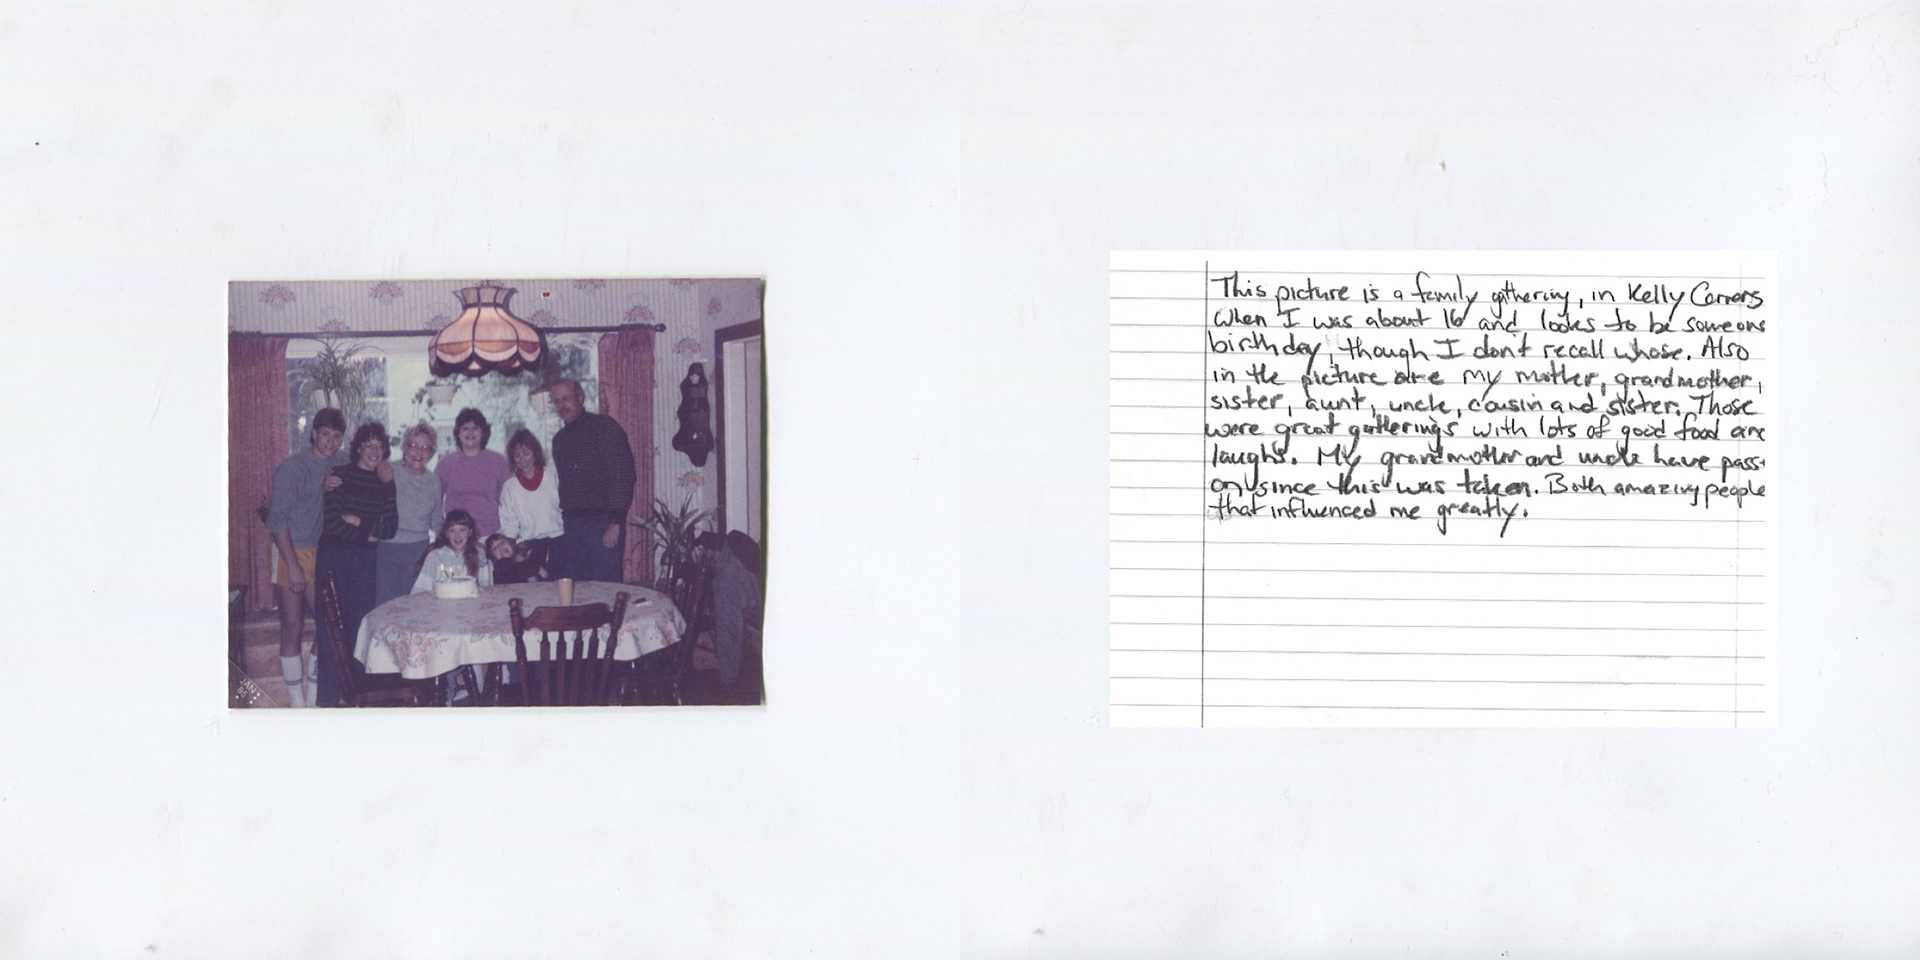 JAN
85
This picture is a family gathering, in Kelly Corners
when I was about 16 and looks to be someons
birthday, though I don't recall whose. Also
in the picture are my mother, grandmother,
sister, aunt, uncle, cousin and sister. Those
were great gatherings with lots of good food and
laughs. My grandmother and uncle have pass
on since this was taken. Both amazing people
that influenced me greatly.